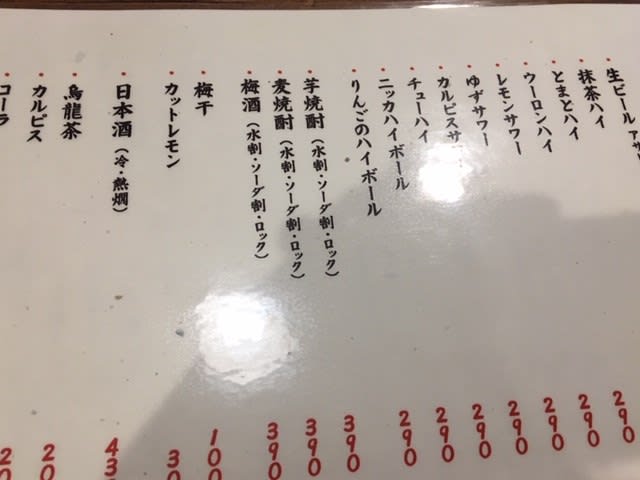 生ビール アサ
抹茶ハイ
とまとハイ
ウーロンハイ 290
レモンサワー 290
ゆずサワー 290
カルピスサワー 290
チューハイ 290
ニッカハイボール 290
りんごのハイボール 290
芋焼酎（水割・ソーダ割・ロック） 390
麦焼酎（水割・ソーダ割・ロック） 390
梅酒（水割・ソーダ割・ロック） 390
梅干 100
カットレモン 30
日本酒（冷・熱燗） 43
烏龍茶 20
カルピス 20
コーラ